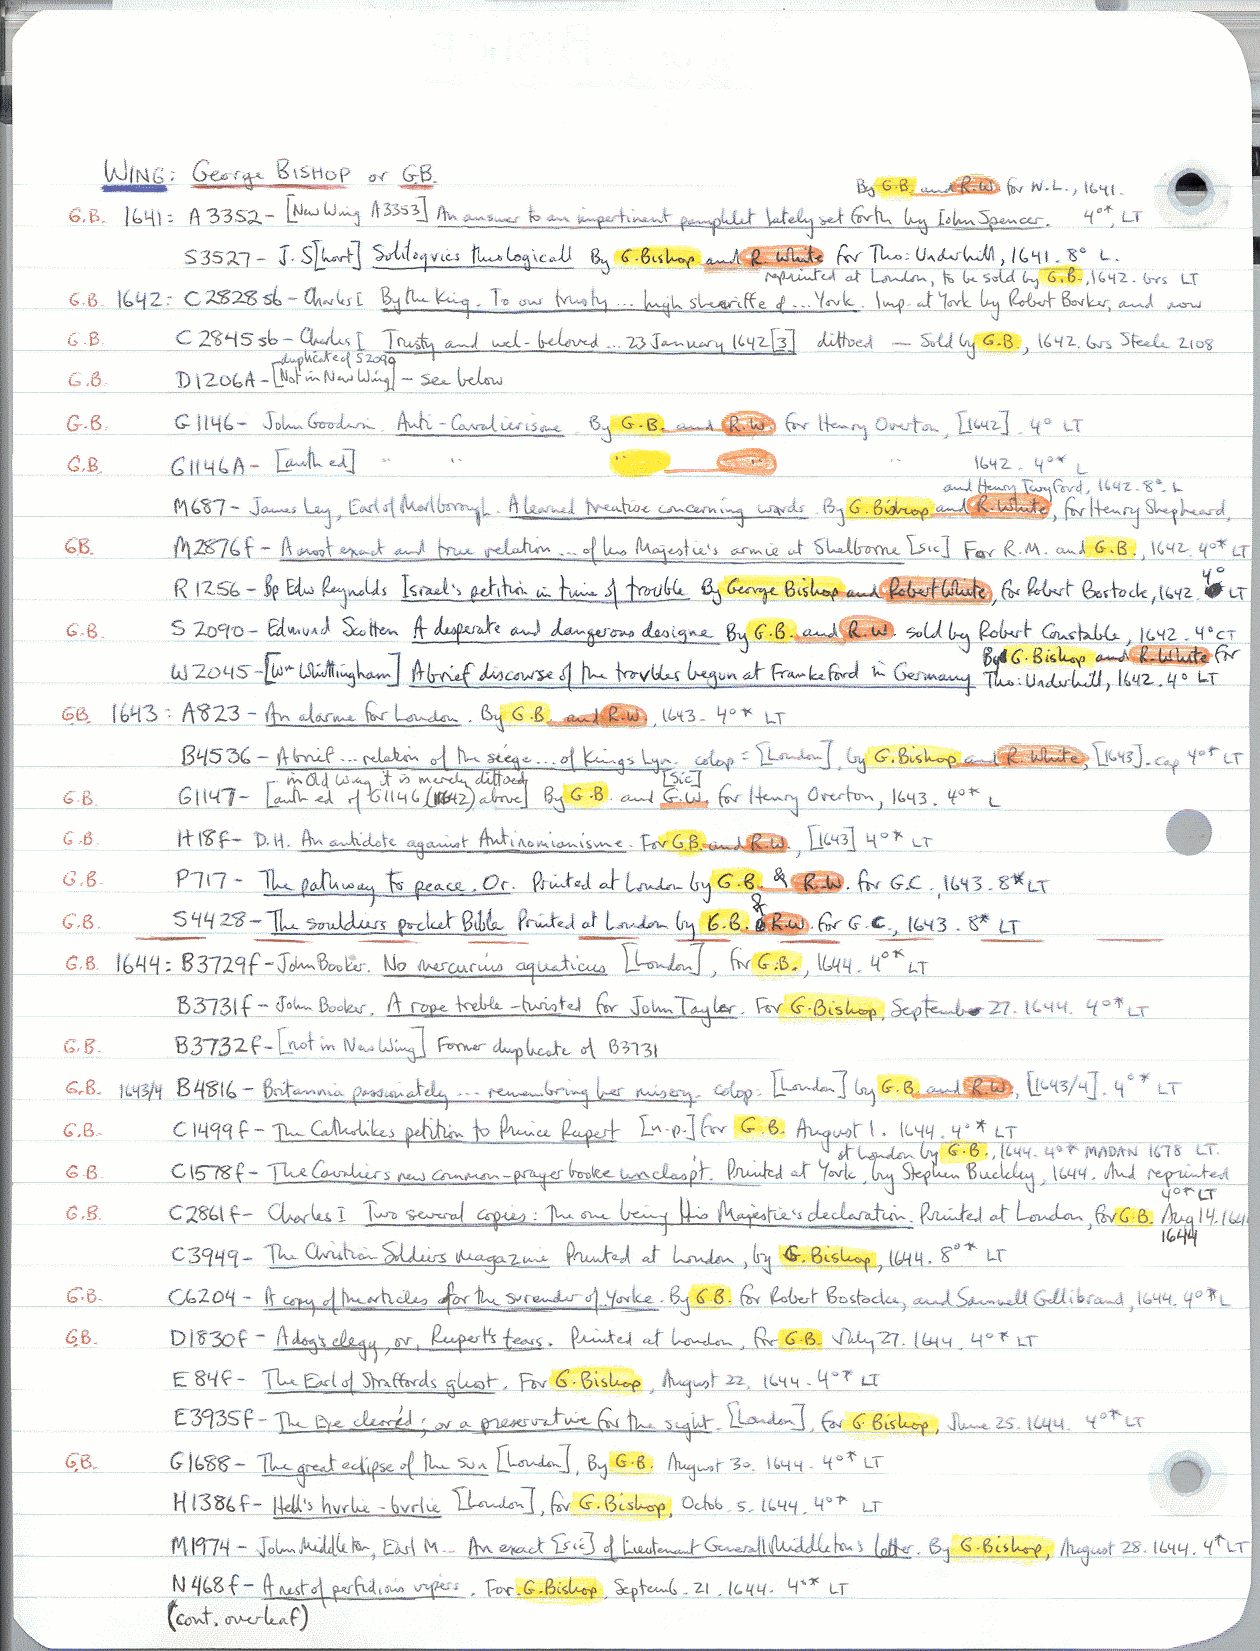 WING: George BISHOP or G.B.
By G.B. and R.W for W.L., 1641.
G.B. 1641: A3352 - [New Wing A3353] An answer to an impertinent pamphlet lately set forth by John Spencer. 4°* LT
S3527 - J. S[hort] Soliloqvies theologicall By G.Bishop and R. White for Tho: Underhill, 1641. 8° L.
reprinted at London, to be sold by G.B., 1642. brs LT
G.B. 1642: C2828sb - Charles I By the King. To our trusty ... high sheriffe of ... York Imp. at York by Robert Barker, and now
G.B. C2845sb - Charles I Trusty and wel-beloved ... 23 January 1642[3] dittoed — Sold by G.B., 1642. brs Steele 2108
duplicate of S2090
G.B. D1206A - [Not in New Wing] - see below
G.B. G1146 - John Goodwin. Anti-Cavalierisme. By G.B. and R.W. for Henry Overton, [1642]. 4° LT
G.B. G1146A - [anoth ed] " " " " " 1642. 4°* L
and Henry Twyford, 1642. 8°. L
M687 - James Ley, Earl of Marlborough. A learned treatise concerning wards. By G.Bishop and R.White, for Henry Shepheard,
GB. M2876f - A most exact and true relation ... of his Majestie's armie at Shelborne [sic] For R.M. and G.B., 1642. 4°* LT
R1256 - Bp Edw Reynolds Israel's petition in time of trouble By George Bishop and Robert White, for Robert Bostock, 1642. 4° LT
G.B. S2090 - Edmund Scotten A desperate and dangerous designe By G.B. and R.W. sold by Robert Constable, 1642. 4° CT
By G.Bishop and R.White for
W2045 - [Wm Whittingham] A brief discourse of the troubles begun at Frankeford in Germany Tho: Underhill, 1642. 4° LT
GB. 1643: A823 - An alarme for London. By G.B. and R.W, 1643. 4°* LT
B4536 - A brief ... relation of the siege ... of Kings Lyn. colop: [London], by G.Bishop and R.White, [1643]. cap 4°* LT
in Old Wing it is merely dittoed [sic]
G.B. G1147 - [anoth ed of G1146 (1642) above] By G.B. and G.W. for Henry Overton, 1643. 4°* L
G.B. H18f - D.H. An antidote against Antinomianisme. For G.B. and R.W., [1643] 4°* LT
G.B. P717 - The pathway to peace. Or. Printed at London by G.B. & R.W. for G.C., 1643. 8* LT
G.B. S4428 - The souldiers pocket Bible Printed at London by G.B. & R.W. for G.C., 1643. 8* LT
G.B. 1644: B3729f - John Booker. No mercurius aquaticus [London], for G.B., 1644. 4°* LT
B3731f - John Booker. A rope treble-twisted for John Tayler. For G.Bishop, September 27. 1644. 4°* LT
G.B. B3732f - [not in New Wing] Former duplicate of B3731
G.B. 1643/4 B4816 - Britannia passionately ... remembring her misery. colop: [London] by G.B. and R.W., [1643/4]. 4°* LT
G.B. C1499f - The Catholikes petition to Prince Rupert [n.p.] for G.B. August 1. 1644. 4°* LT
at London by G.B., 1644. 4°* MADAN 1678 LT.
G.B. C1578f - The Cavaliers new common-prayer booke unclasp't. Printed at York, by Stephen Buckley, 1644. And reprinted
4°* LT
G.B. C2861f - Charles I Two several copies: The one being His Majestie's declaration. Printed at London, for G.B. Aug 14. 164
1644
C3949 - The Christian Soldiers magazine Printed at London, by G.Bishop, 1644. 8°* LT
G.B. C6204 - A copy of the articles for the surender of Yorke. By G.B. for Robert Bostocke, and Samuell Gellibrand, 1644. 4°* L
G.B. D1830f - A dog's elegy, or, Rupert's tears. Printed at London, for G.B. July 27. 1644. 4°* LT
E84f - The Earl of Straffords ghost. For G.Bishop, August 22. 1644. 4°* LT
E3935f - The Eye cleared; or a preservative for the sight. [London], for G.Bishop, June 25. 1644. 4°* LT
G.B. G1688 - The great eclipse of the sun [London], By G.B. August 30. 1644. 4°* LT
H1386f - Hell's hurlie-burlie [London], for G.Bishop, Octob. 5. 1644. 4°* LT
M1974 - John Middleton, Earl M... An exact [sic] of Lieutenant Generall Middletons letter. By G.Bishop, August 28. 1644. 4* LT
N468f - A nest of perfidious vipers. For G.Bishop, Septemb. 21. 1644. 4°* LT
(cont. overleaf)